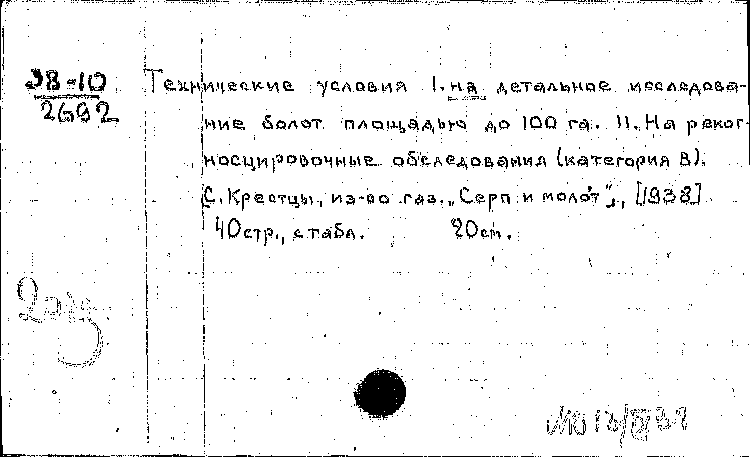 38-10
2692
Технические условия I. на детальное исследова-
ние болот площадью до 100 га. II. На реког-
носцировочные обследования (категория В).
С. Крестцы, из-во газ. „Серп и молот", [1938]
40стр., с табл. 20см.